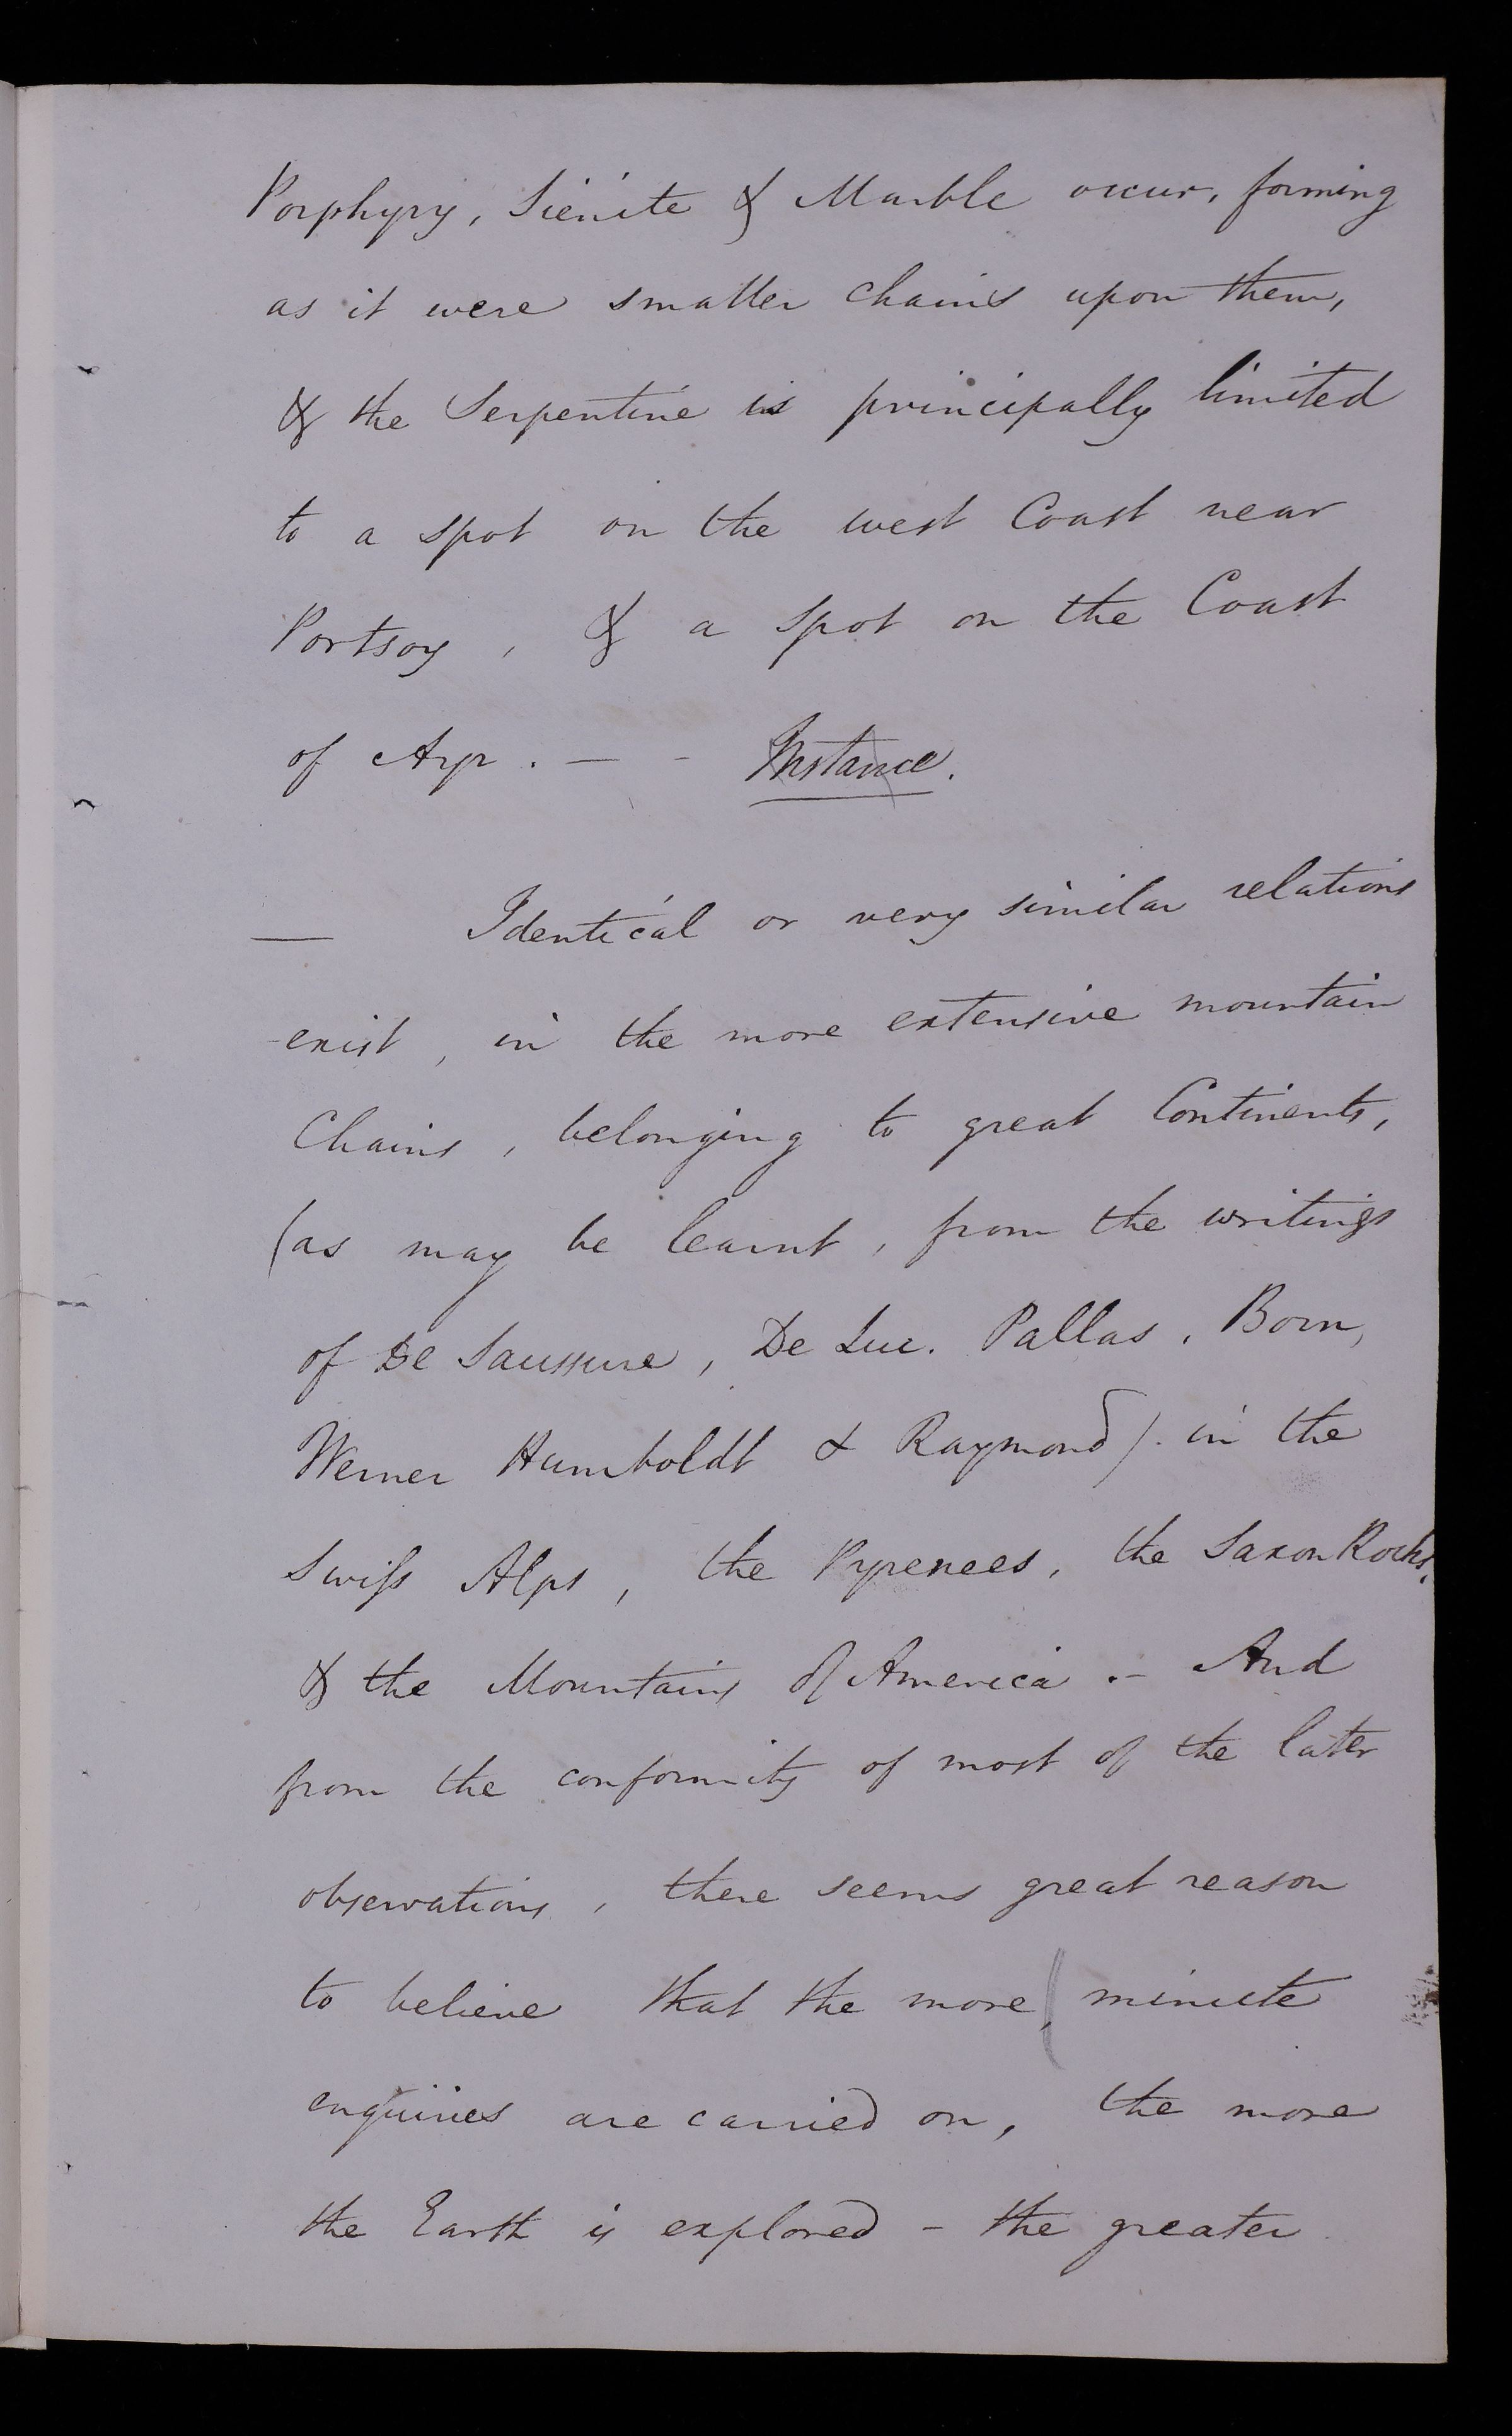 Porphyry, Sienite & Marble occur, forming
as it were smaller chains upon them,
& the Serpentine is principally limited
to a spot on the west Coast near
Portsoy, & a spot on the Coast
of Ayr. — - Instance.
— Identical or very similar relations
exist, in the more extensive mountain
Chains, belonging to great Continents,
(as may be learnt, from the writings
of De Saussure, De Luc. Pallas, Born,
Werner Humboldt & Raymond). in the
Swiss Alps, the Pyrenees, the Saxon Rocks,
& the Mountains of America. - And
from the conformity of most of the later
observations, there seems great reason
to believe that the more, minute
enquiries are carried on, the more
the Earth is explored - the greater